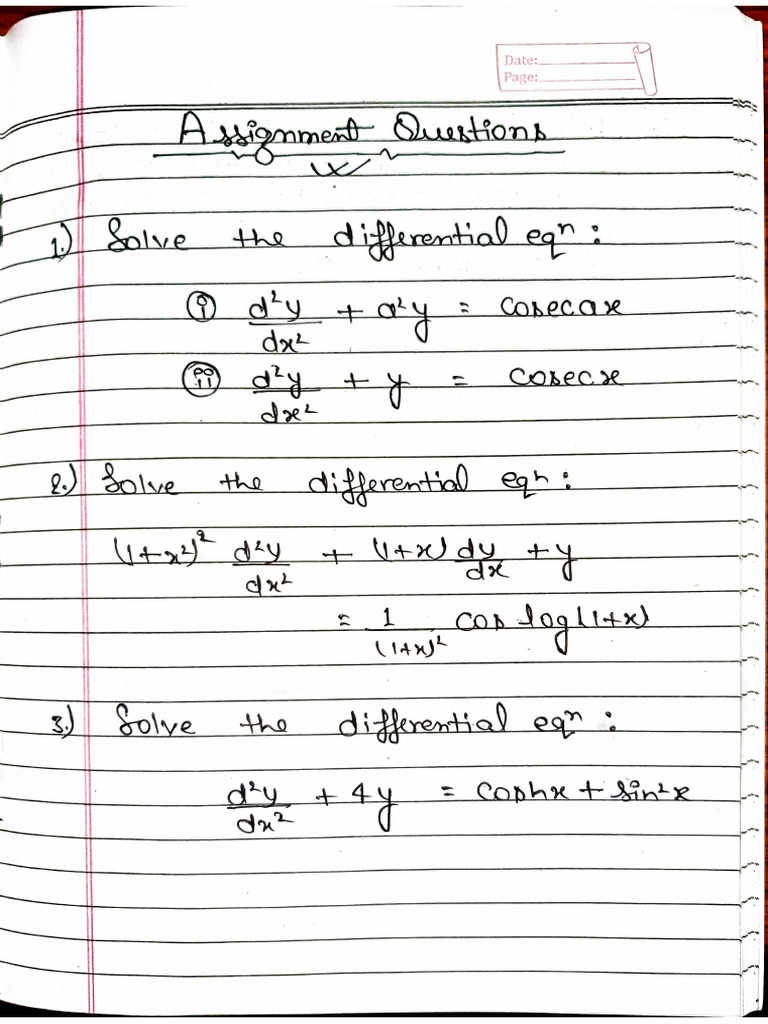 Date:
Page:
Assignment Questions
1.) Solve the differential eqⁿ :
(i) d²y/dx² + a²y = cosecax
(ii) d²y/dx² + y = cosecx
2.) Solve the differential eqⁿ :
(1+x²)² d²y/dx² + (1+x) dy/dx + y
= 1/(1+x)² cos log(1+x)
3.) Solve the differential eqⁿ :
d²y/dx² + 4y = coshx + sin²x